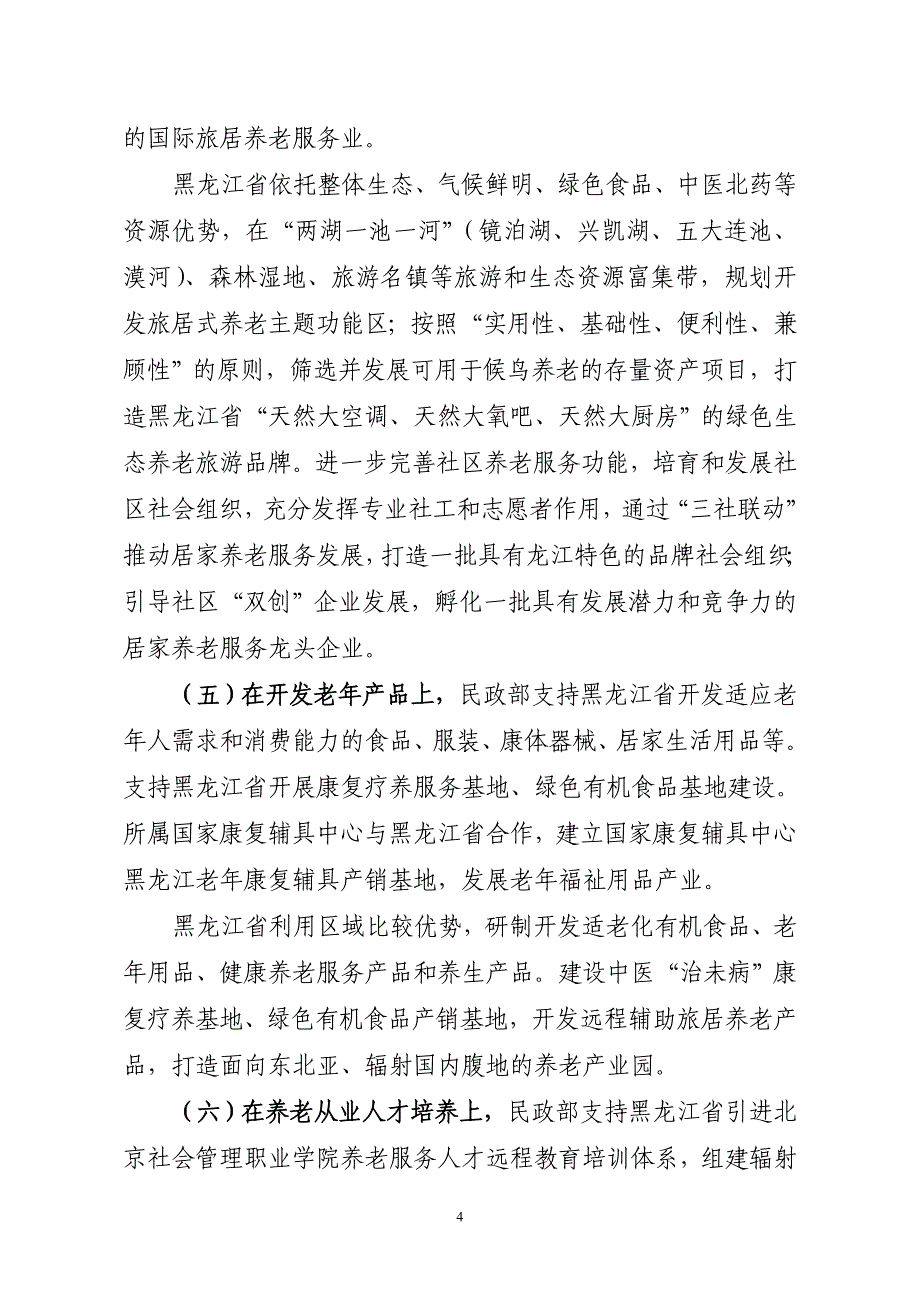 的国际旅居养老服务业。
黑龙江省依托整体生态、气候鲜明、绿色食品、中医北药等
资源优势，在“两湖一池一河”（镜泊湖、兴凯湖、五大连池、
漠河）、森林湿地、旅游名镇等旅游和生态资源富集带，规划开
发旅居式养老主题功能区；按照“实用性、基础性、便利性、兼
顾性”的原则，筛选并发展可用于候鸟养老的存量资产项目，打
造黑龙江省“天然大空调、天然大氧吧、天然大厨房”的绿色生
态养老旅游品牌。进一步完善社区养老服务功能，培育和发展社
区社会组织，充分发挥专业社工和志愿者作用，通过“三社联动”
推动居家养老服务发展，打造一批具有龙江特色的品牌社会组织；
引导社区“双创”企业发展，孵化一批具有发展潜力和竞争力的
居家养老服务龙头企业。
（五）在开发老年产品上，民政部支持黑龙江省开发适应老
年人需求和消费能力的食品、服装、康体器械、居家生活用品等。
支持黑龙江省开展康复疗养服务基地、绿色有机食品基地建设。
所属国家康复辅具中心与黑龙江省合作，建立国家康复辅具中心
黑龙江老年康复辅具产销基地，发展老年福祉用品产业。
黑龙江省利用区域比较优势，研制开发适老化有机食品、老
年用品、健康养老服务产品和养生产品。建设中医“治未病”康
复疗养基地、绿色有机食品产销基地，开发远程辅助旅居养老产
品，打造面向东北亚、辐射国内腹地的养老产业园。
（六）在养老从业人才培养上，民政部支持黑龙江省引进北
京社会管理职业学院养老服务人才远程教育培训体系，组建辐射
4